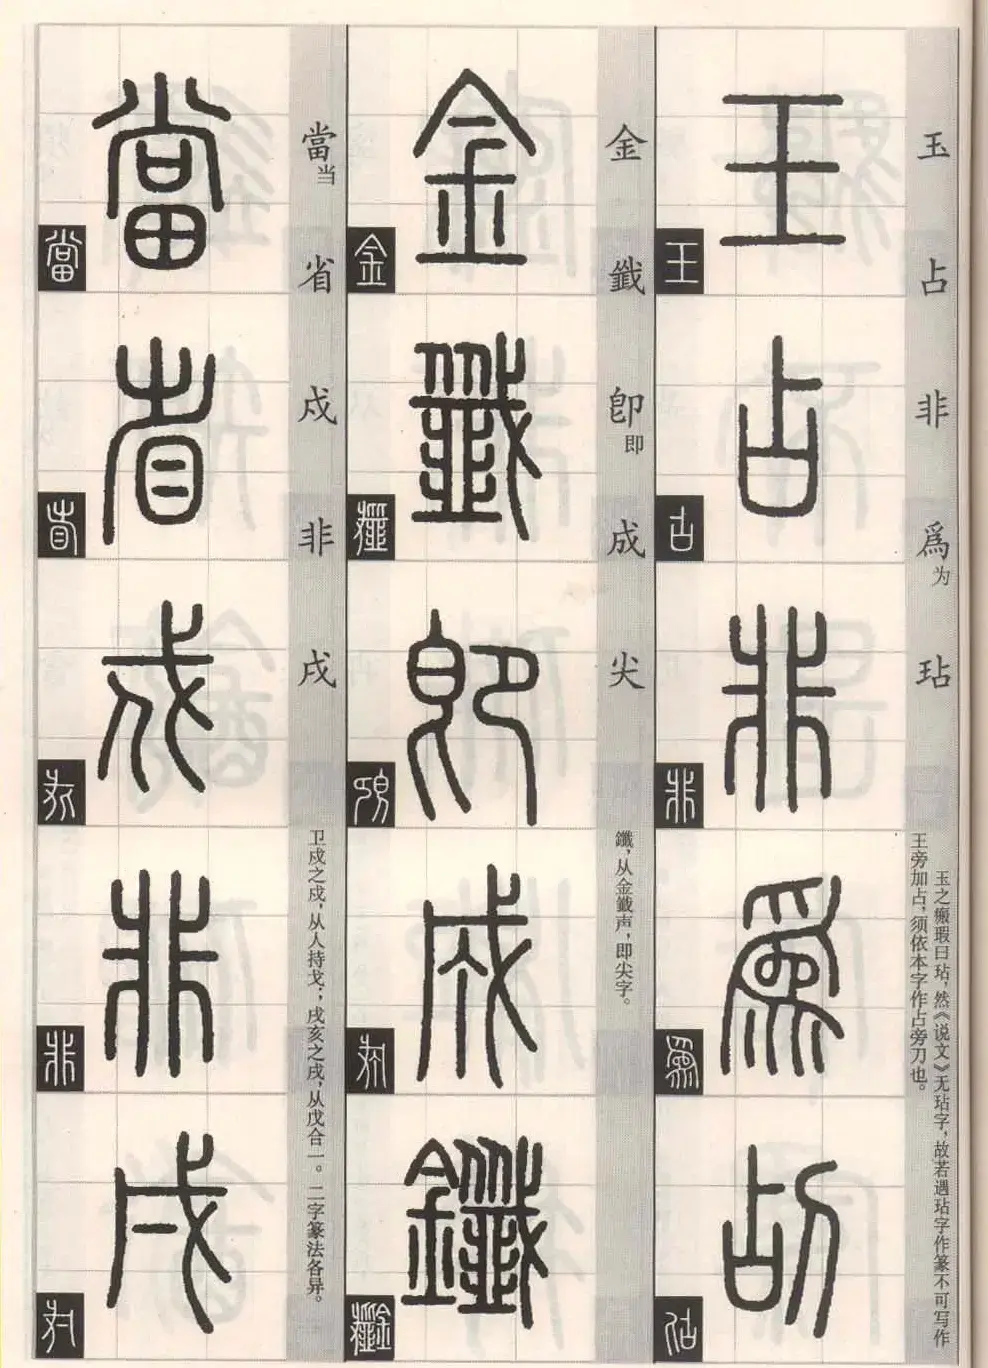 玉占非爲为玷
玉之瘢瑕曰玷，然《说文》无玷字，故若遇玷字作篆不可写作
王旁加占，须依本字作占旁刀也。
玉占非爲㓠
金韱卽即成尖
鑯，从金韱声，即尖字。
金韱卽成鑯
當当省戍非戌
卫戍之戍，从人持戈；戌亥之戌，从戊合一。二字篆法各异。
當省戍非戌